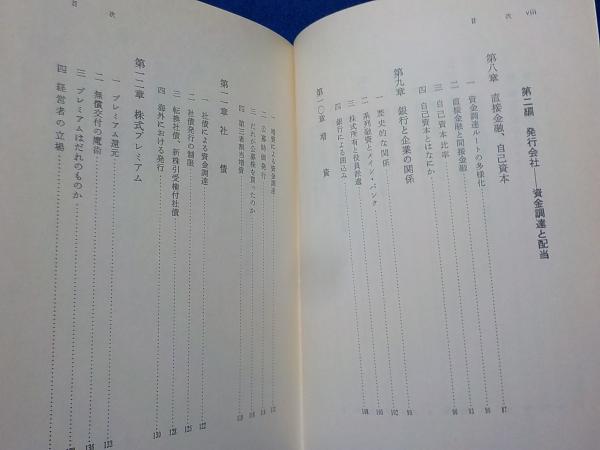 目　次 viii
第二編　発行会社――資金調達と配当
第八章　直接金融、自己資本
一　資金調達ルートの多様化 87
二　直接金融と間接金融
三　自己資本比率
四　自己資本とはなにか
第九章　銀行と企業の関係
一　歴史的な関係
二　系列融資とメイン・バンク 102
三　株式所有と役員派遣
四　銀行による囲込み 108
第一〇章　増　資
目　次
一　増資による資金調達
二　公募時価発行
三　だれが公募株を買ったのか
四　第三者割当増資
第一一章　社　債
一　社債による資金調達 122
二　社債発行の制限 125
三　転換社債、新株引受権付社債 128
四　海外における発行 130
第一二章　株式プレミアム
一　プレミアム還元 133
二　無償交付の魔術
三　プレミアムはだれのものか
四　経営者の立場